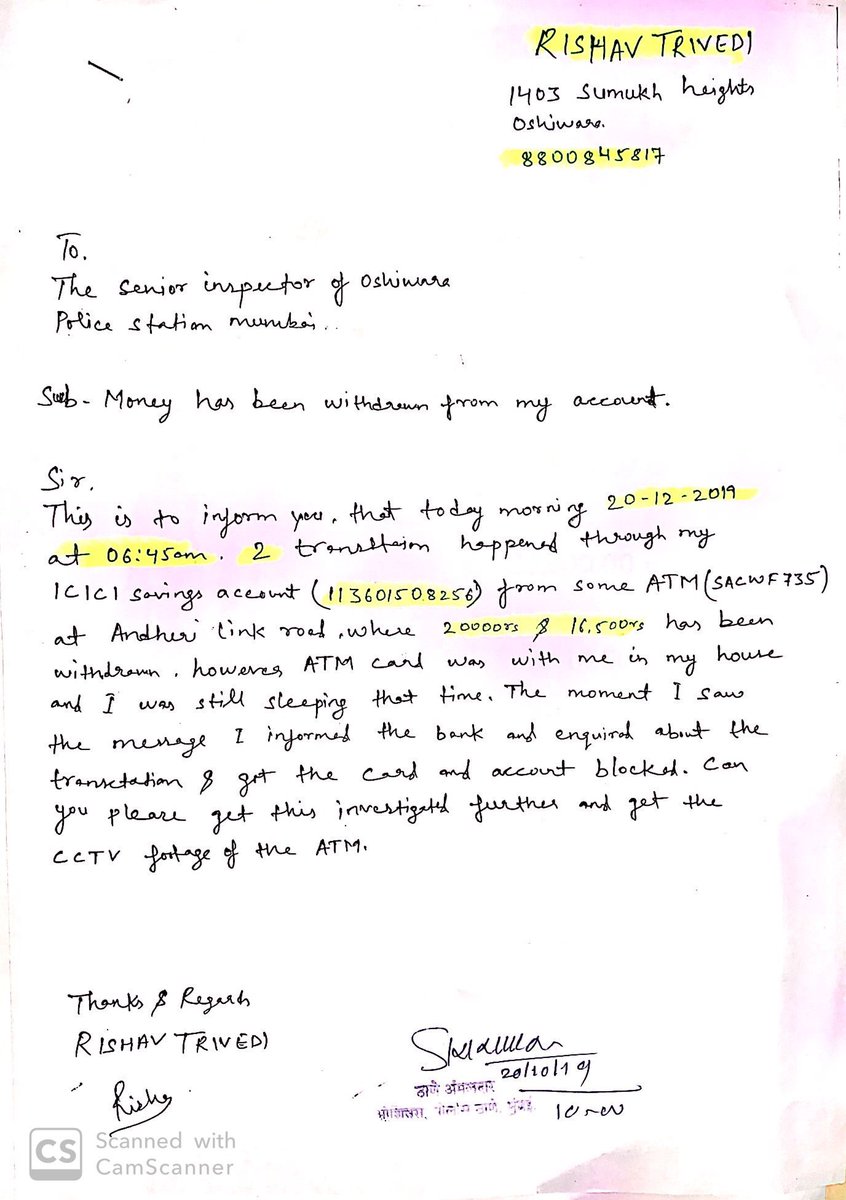 RISHAV TRIVEDI
1403 Sumukh heights
Oshiwara.
8800845817
To.
The senior inspector of Oshiwara
Police station mumbai..
Sub- Money has been withdrawn from my account.
Sir,
This is to inform you, that today morning 20-12-2019
at 06:45am. 2 transttaion happened through my
ICICI savings account (113601508256) from some ATM (SACWF735)
at Andheri link road, where 20000rs & 16,500rs has been
withdrawn. however ATM card was with me in my house
and I was still sleeping that time. The moment I saw
the message I informed the bank and enquired about the
transctation & got the card and account blocked. Can
you please get this investigated further and get the
CCTV footage of the ATM.
Thanks & Regards
RISHAV TRIVEDI
Risha
20/10/19
ठाणे अंमलदार
पोलीस ठाणे, मुंबई.
CS Scanned with
CamScanner